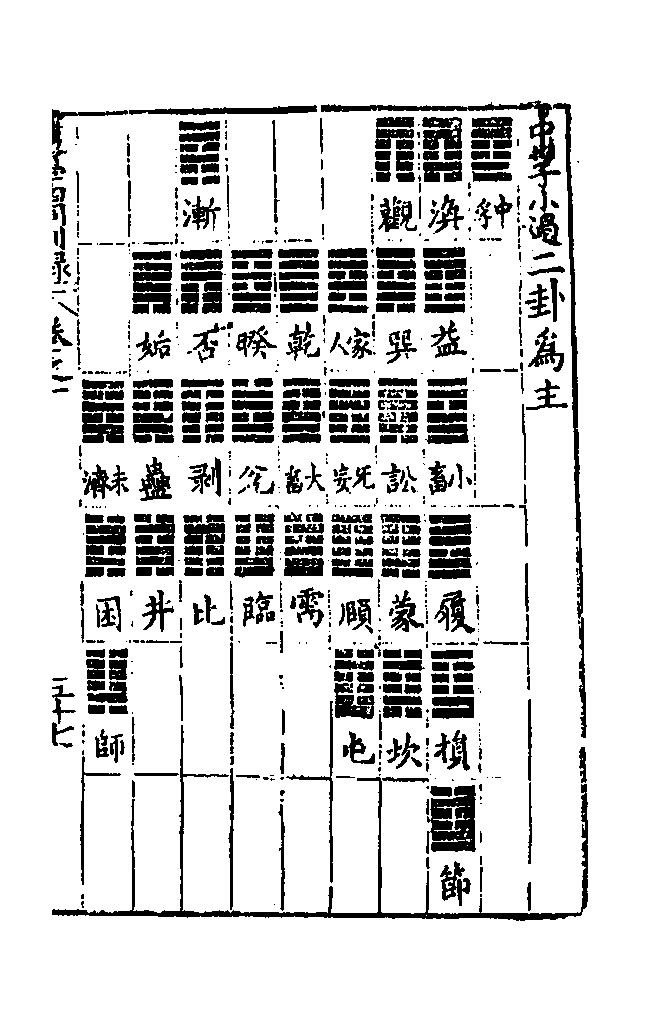 中孚小過二卦爲主
中孚
渙 益 小畜 履 損 節
觀 巽 訟 蒙 坎
家人 无妄 頤 屯
乾 大畜 需
睽 兌 臨
漸 否 剝 比
姤 蠱 井
未濟 困 師
卷之一 五十七